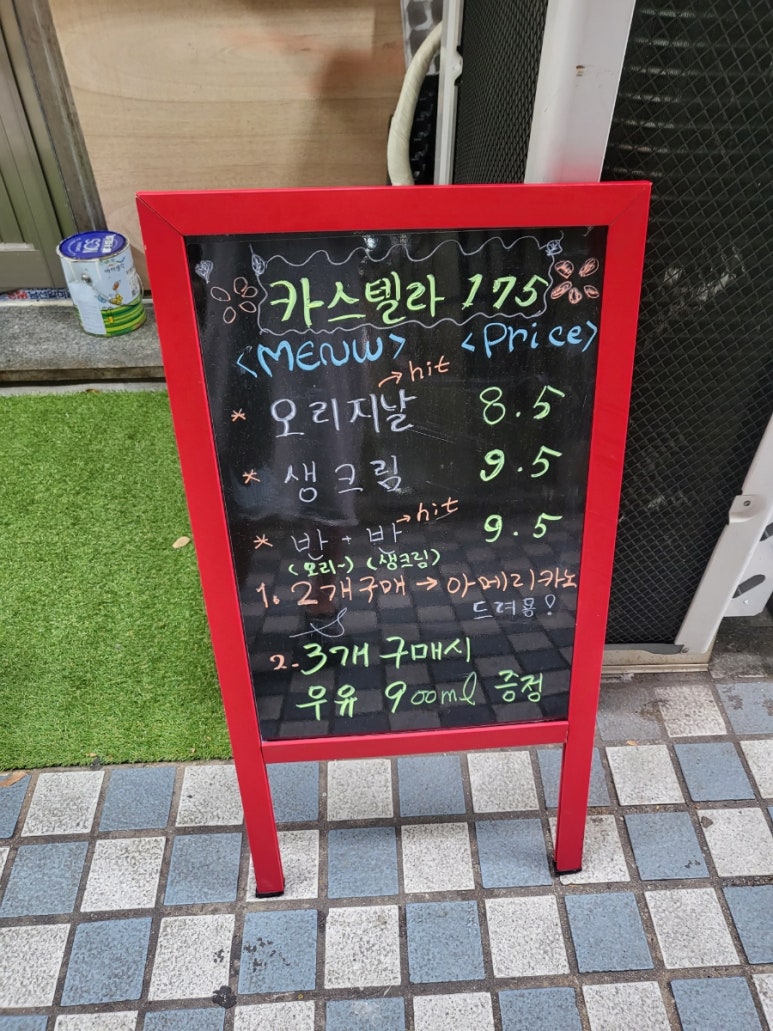 카스텔라 175
<MENW> <Price>
→hit
* 오리지날 8.5
* 생크림 9.5
→hit
* 반 + 반 9.5
<오리~> <생크림>
1. 2개구매 → 아메리카노
드려용!
2. 3개 구매시
우유 900ml 증정